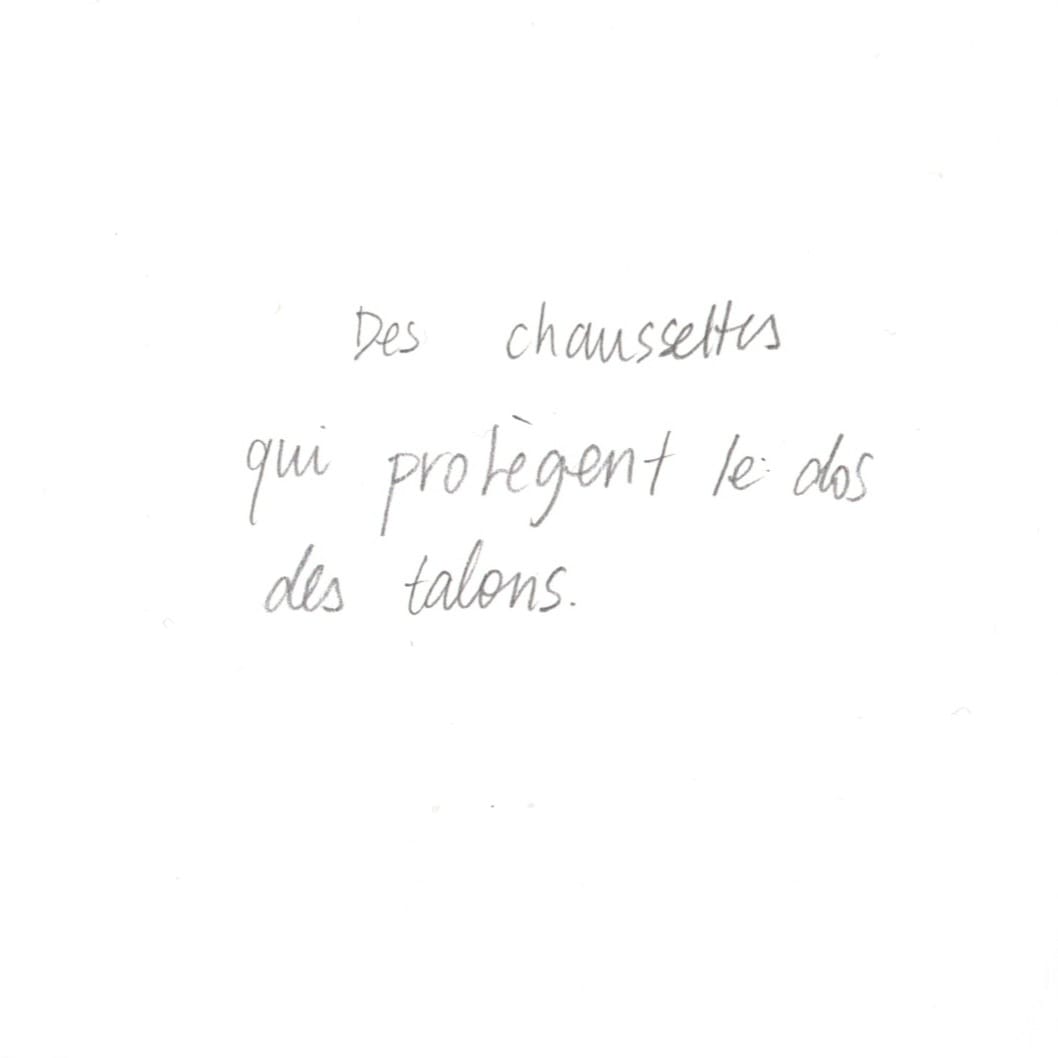 Des chaussettes
qui protègent le dos
des talons.